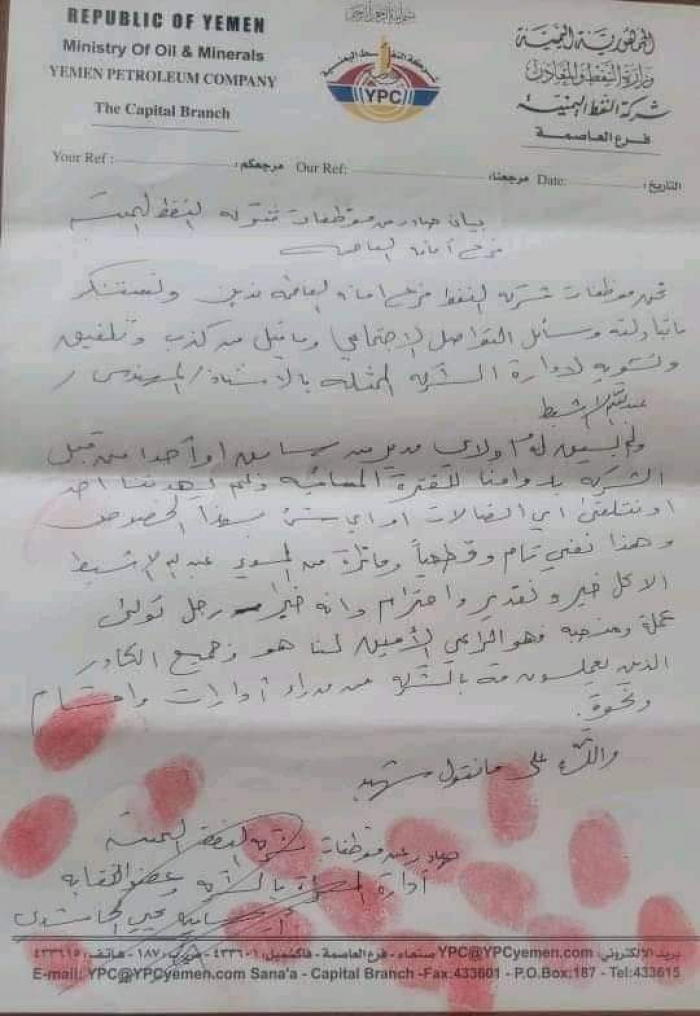 REPUBLIC OF YEMEN
Ministry Of Oil & Minerals
YEMEN PETROLEUM COMPANY
The Capital Branch
شركة النفط اليمنية
YPC
الجمهورية اليمنية
وزارة النفط والمعادن
شركة النفط اليمنية
فرع العاصمة
Your Ref : مرجعكم: Our Ref: مرجعنا: Date: التاريخ:
بيان صادر من موظفات شركة النفط اليمنية
فرع أمانة العاصمة
نحن موظفات شركة النفط فرع امانة العاصمة ندين ونستنكر
ماتبادلته وسائل التواصل الاجتماعي وماقيل من كذب وتلفيق
وتشويه لادارة الشركة الممثلة بالاستاذ/المهندس/
عبدالله الاشبط
ولم يسبق لنا ولاي مدير من سابق او أحدا من قبل
الشركة بدوامنا للفترة المسائية ولم يهددنا احد
او نتلقى أي اتصالات او اي شئ بهذا الخصوص
وهذا نفي تام وقطعياً من عبدالله الاشبط
الا كل خير وتقدير واحترام وانه خير رجل تولى
عمله ومنصبه فهو الراعي الأمين لنا هو وجميع الكادر
الذين يعملون معه بالشركة من مدراء أدارات واقسام
ونخوة.
والله على مانقول شهيد
صادر عن موظفات شركة النفط اليمنية
أدارة المرأة بالشركة وعضو النقابة
يحيى
بريد الالكتروني: YPC@YPCyemen.com صنعاء - فرع العاصمة - فاكسميل: ٤٣٣٦٠١ - ص.ب: ١٨٧ - هاتف: ٤٣٣٦١٥
E-mail: YPC@YPCyemen.com Sana'a - Capital Branch -Fax:433601 - P.O.Box:187 - Tel:433615